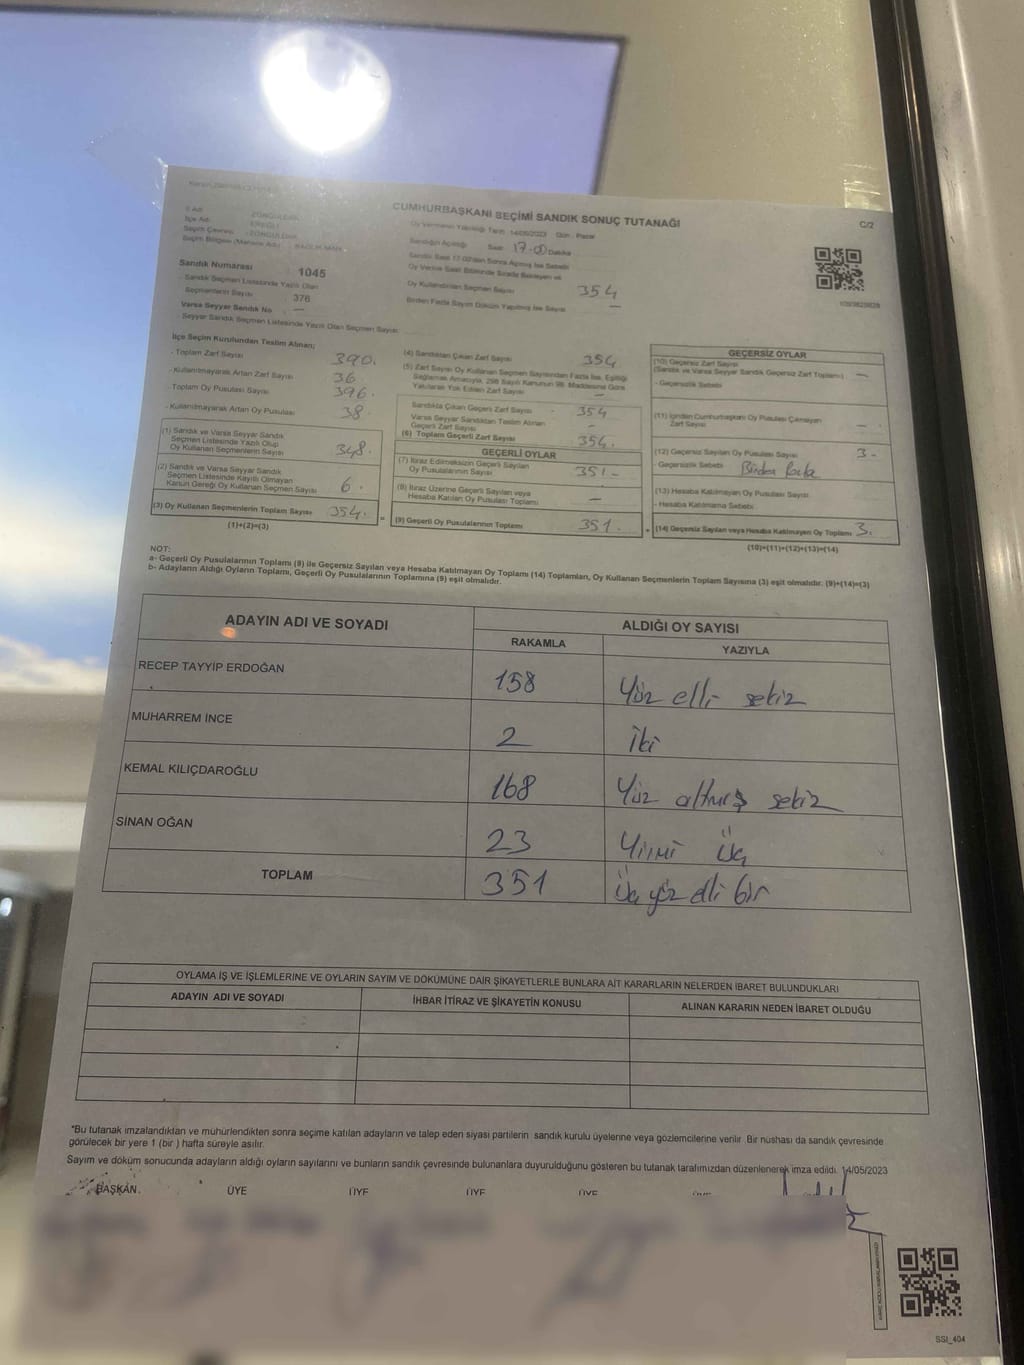 CUMHURBAŞKANI SEÇİMİ SANDIK SONUÇ TUTANAĞI
C/2
İl Adı : ZONGULDAK
İlçe Adı : EREĞLİ
Seçim Çevresi : ZONGULDAK
Seçim Bölgesi (Mahalle Adı) : BAĞLIK MAH.
Oy Vermenin Yapıldığı Tarih: 14/05/2023 Gün : Pazar
Sandığın Açıldığı Saat: 17.00 Dakika
Oy Kullandırılan Seçmen Sayısı 354
Birden Fazla Sayım Döküm Yapılmış İse Sayısı —
Sandık Numarası 1045
- Sandık Seçmen Listesinde Yazılı Olan
Seçmenlerin Sayısı 376
Varsa Seyyar Sandık No —
- Seyyar Sandık Seçmen Listesinde Yazılı Olan Seçmen Sayısı
İlçe Seçim Kurulundan Teslim Alınan;
- Toplam Zarf Sayısı 390.
- Kullanılmayarak Artan Zarf Sayısı 36
- Toplam Oy Pusulası Sayısı 396.
- Kullanılmayarak Artan Oy Pusulası 38.
(1) Sandık ve Varsa Seyyar Sandık
Seçmen Listesinde Yazılı Olup
Oy Kullanan Seçmen Sayısı 348.
(2) Sandık ve Varsa Seyyar Sandık
Seçmen Listesinde Kayıtlı Olmayan
Kanun Gereği Oy Kullanan Seçmen Sayısı 6.
(3) Oy Kullanan Seçmenlerin Toplam Sayısı 354.
(1)+(2)=(3)
(4) Sandıktan Çıkan Zarf Sayısı 354
(5) Zarf Sayısı Oy Kullanan Seçmen Sayısından Fazla İse, Eşitliği
Sağlamak Amacıyla, 298 Sayılı Kanunun 98. Maddesine Göre
Yakılarak Yok Edilen Zarf Sayısı —
Sandıkta Çıkan Geçerli Zarf Sayısı 354
Varsa Seyyar Sandıktan Teslim Alınan
Geçerli Zarf Sayısı -
(6) Toplam Geçerli Zarf Sayısı 354.
GEÇERLİ OYLAR
(7) İtiraz Edilmeksizin Geçerli Sayılan
Oy Pusulalarının Sayısı 351-
(8) İtiraz Üzerine Geçerli Sayılan veya
Hesaba Katılan Oy Pusulası Toplamı —
(9) Geçerli Oy Pusulalarının Toplamı 351.
GEÇERSİZ OYLAR
(10) Geçersiz Zarf Sayısı
(Sandık ve Varsa Seyyar Sandık Geçersiz Zarf Toplamı) —
- Geçersizlik Sebebi
(11) İçinden Cumhurbaşkanı Oy Pusulası Çıkmayan
Zarf Sayısı —
(12) Geçersiz Sayılan Oy Pusulası Sayısı 3-
- Geçersizlik Sebebi Birden fazla
(13) Hesaba Katılmayan Oy Pusulası Sayısı
- Hesaba Katılmama Sebebi
(14) Geçersiz Sayılan veya Hesaba Katılmayan Oy Toplamı 3.
(10)+(11)+(12)+(13)=(14)
NOT:
a- Geçerli Oy Pusulalarının Toplamı (9) ile Geçersiz Sayılan veya Hesaba Katılmayan Oy Toplamı (14) Toplamları, Oy Kullanan Seçmenlerin Toplam Sayısına (3) eşit olmalıdır. (9)+(14)=(3)
b- Adayların Aldığı Oyların Toplamı, Geçerli Oy Pusulalarının Toplamına (9) eşit olmalıdır.
ADAYIN ADI VE SOYADI
ALDIĞI OY SAYISI
RAKAMLA YAZIYLA
RECEP TAYYİP ERDOĞAN 158 Yüz elli sekiz
MUHARREM İNCE 2 İki
KEMAL KILIÇDAROĞLU 168 Yüz altmış sekiz
SİNAN OĞAN 23 Yirmi üç
TOPLAM 351 Üç yüz elli bir
OYLAMA İŞ VE İŞLEMLERİNE VE OYLARIN SAYIM VE DÖKÜMÜNE DAİR ŞİKAYETLERLE BUNLARA AİT KARARLARIN NELERDEN İBARET BULUNDUKLARI
ADAYIN ADI VE SOYADI İHBAR İTİRAZ VE ŞİKAYETİN KONUSU ALINAN KARARIN NEDEN İBARET OLDUĞU
"Bu tutanak imzalandıktan ve mühürlendikten sonra seçime katılan adayların ve talep eden siyasi partilerin sandık kurulu üyelerine veya gözlemcilerine verilir. Bir nüshası da sandık çevresinde
görülecek bir yere 1 (bir ) hafta süreyle asılır.
Sayım ve döküm sonucunda adayların aldığı oyların sayılarını ve bunların sandık çevresinde bulunanlara duyurulduğunu gösteren bu tutanak tarafımızdan düzenlenerek imza edildi. 14/05/2023
BAŞKAN ÜYE ÜYE ÜYE ÜYE ÜYE
SSI_404